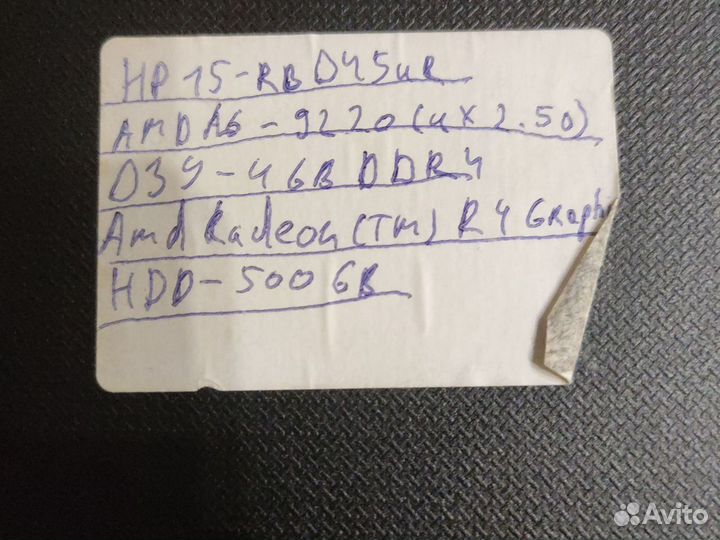 HP 15-RB045uR
AMD A6-9220 (4x2.50)
ОЗУ-4 GB DDR4
Amd Radeon (TM) R4 Graph
HDD-500 GB
Avito